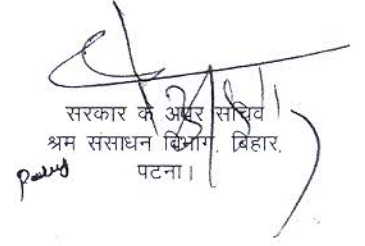 सरकार के अवर सचिव
श्रम संसाधन विभाग, बिहार,
पटना।